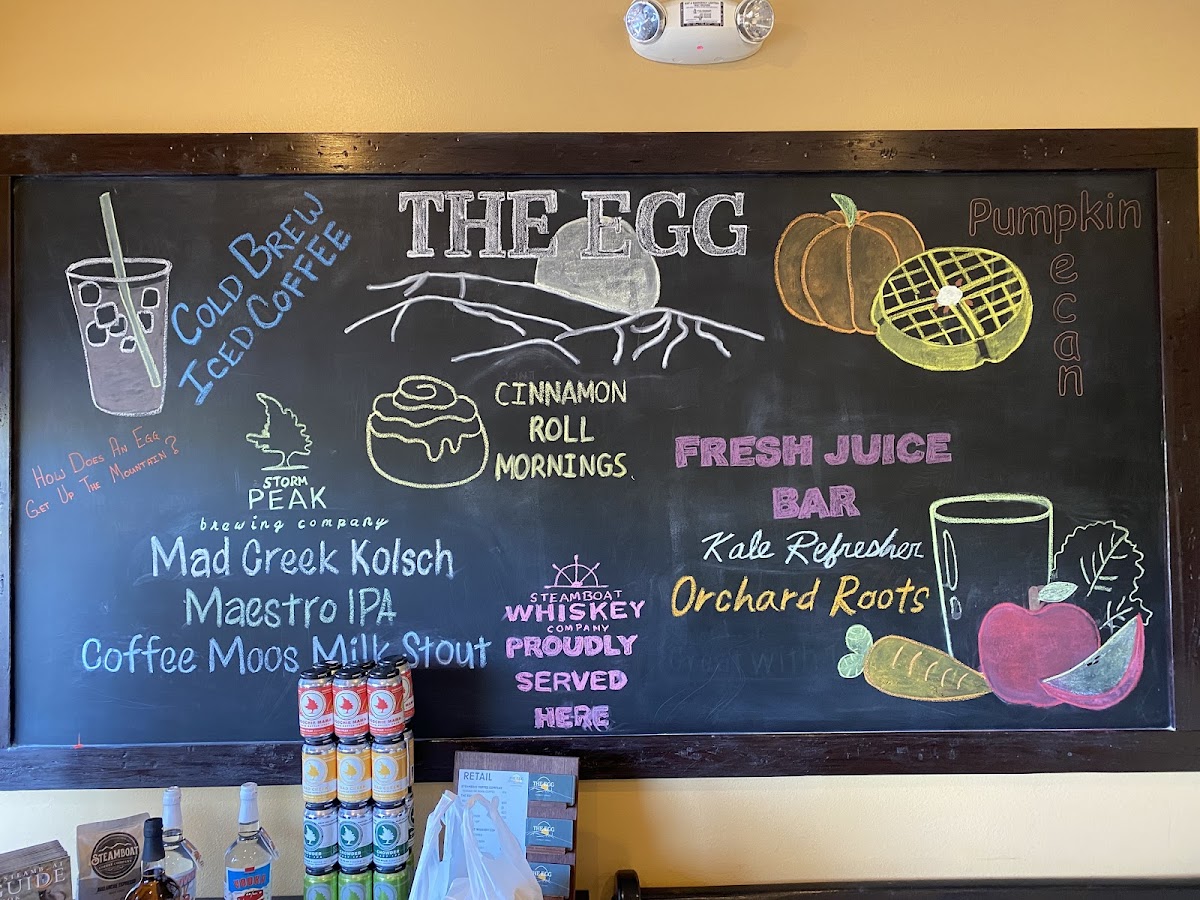 THE EGG
COLD BREW
ICED COFFEE
Pumpkin
pecan
HOW DOES AN EGG
GET UP THE MOUNTAIN?
STORM
PEAK
brewing company
Mad Creek Kolsch
Maestro IPA
Coffee Moos Milk Stout
CINNAMON
ROLL
MORNINGS
STEAMBOAT
WHISKEY
COMPANY
PROUDLY
SERVED
HERE
FRESH JUICE
BAR
Kale Refresher
Orchard Roots
RETAIL
THE EGG
THE EGG
THE EGG
STEAMBOAT
GUIDE
STEAMBOAT
VODKA